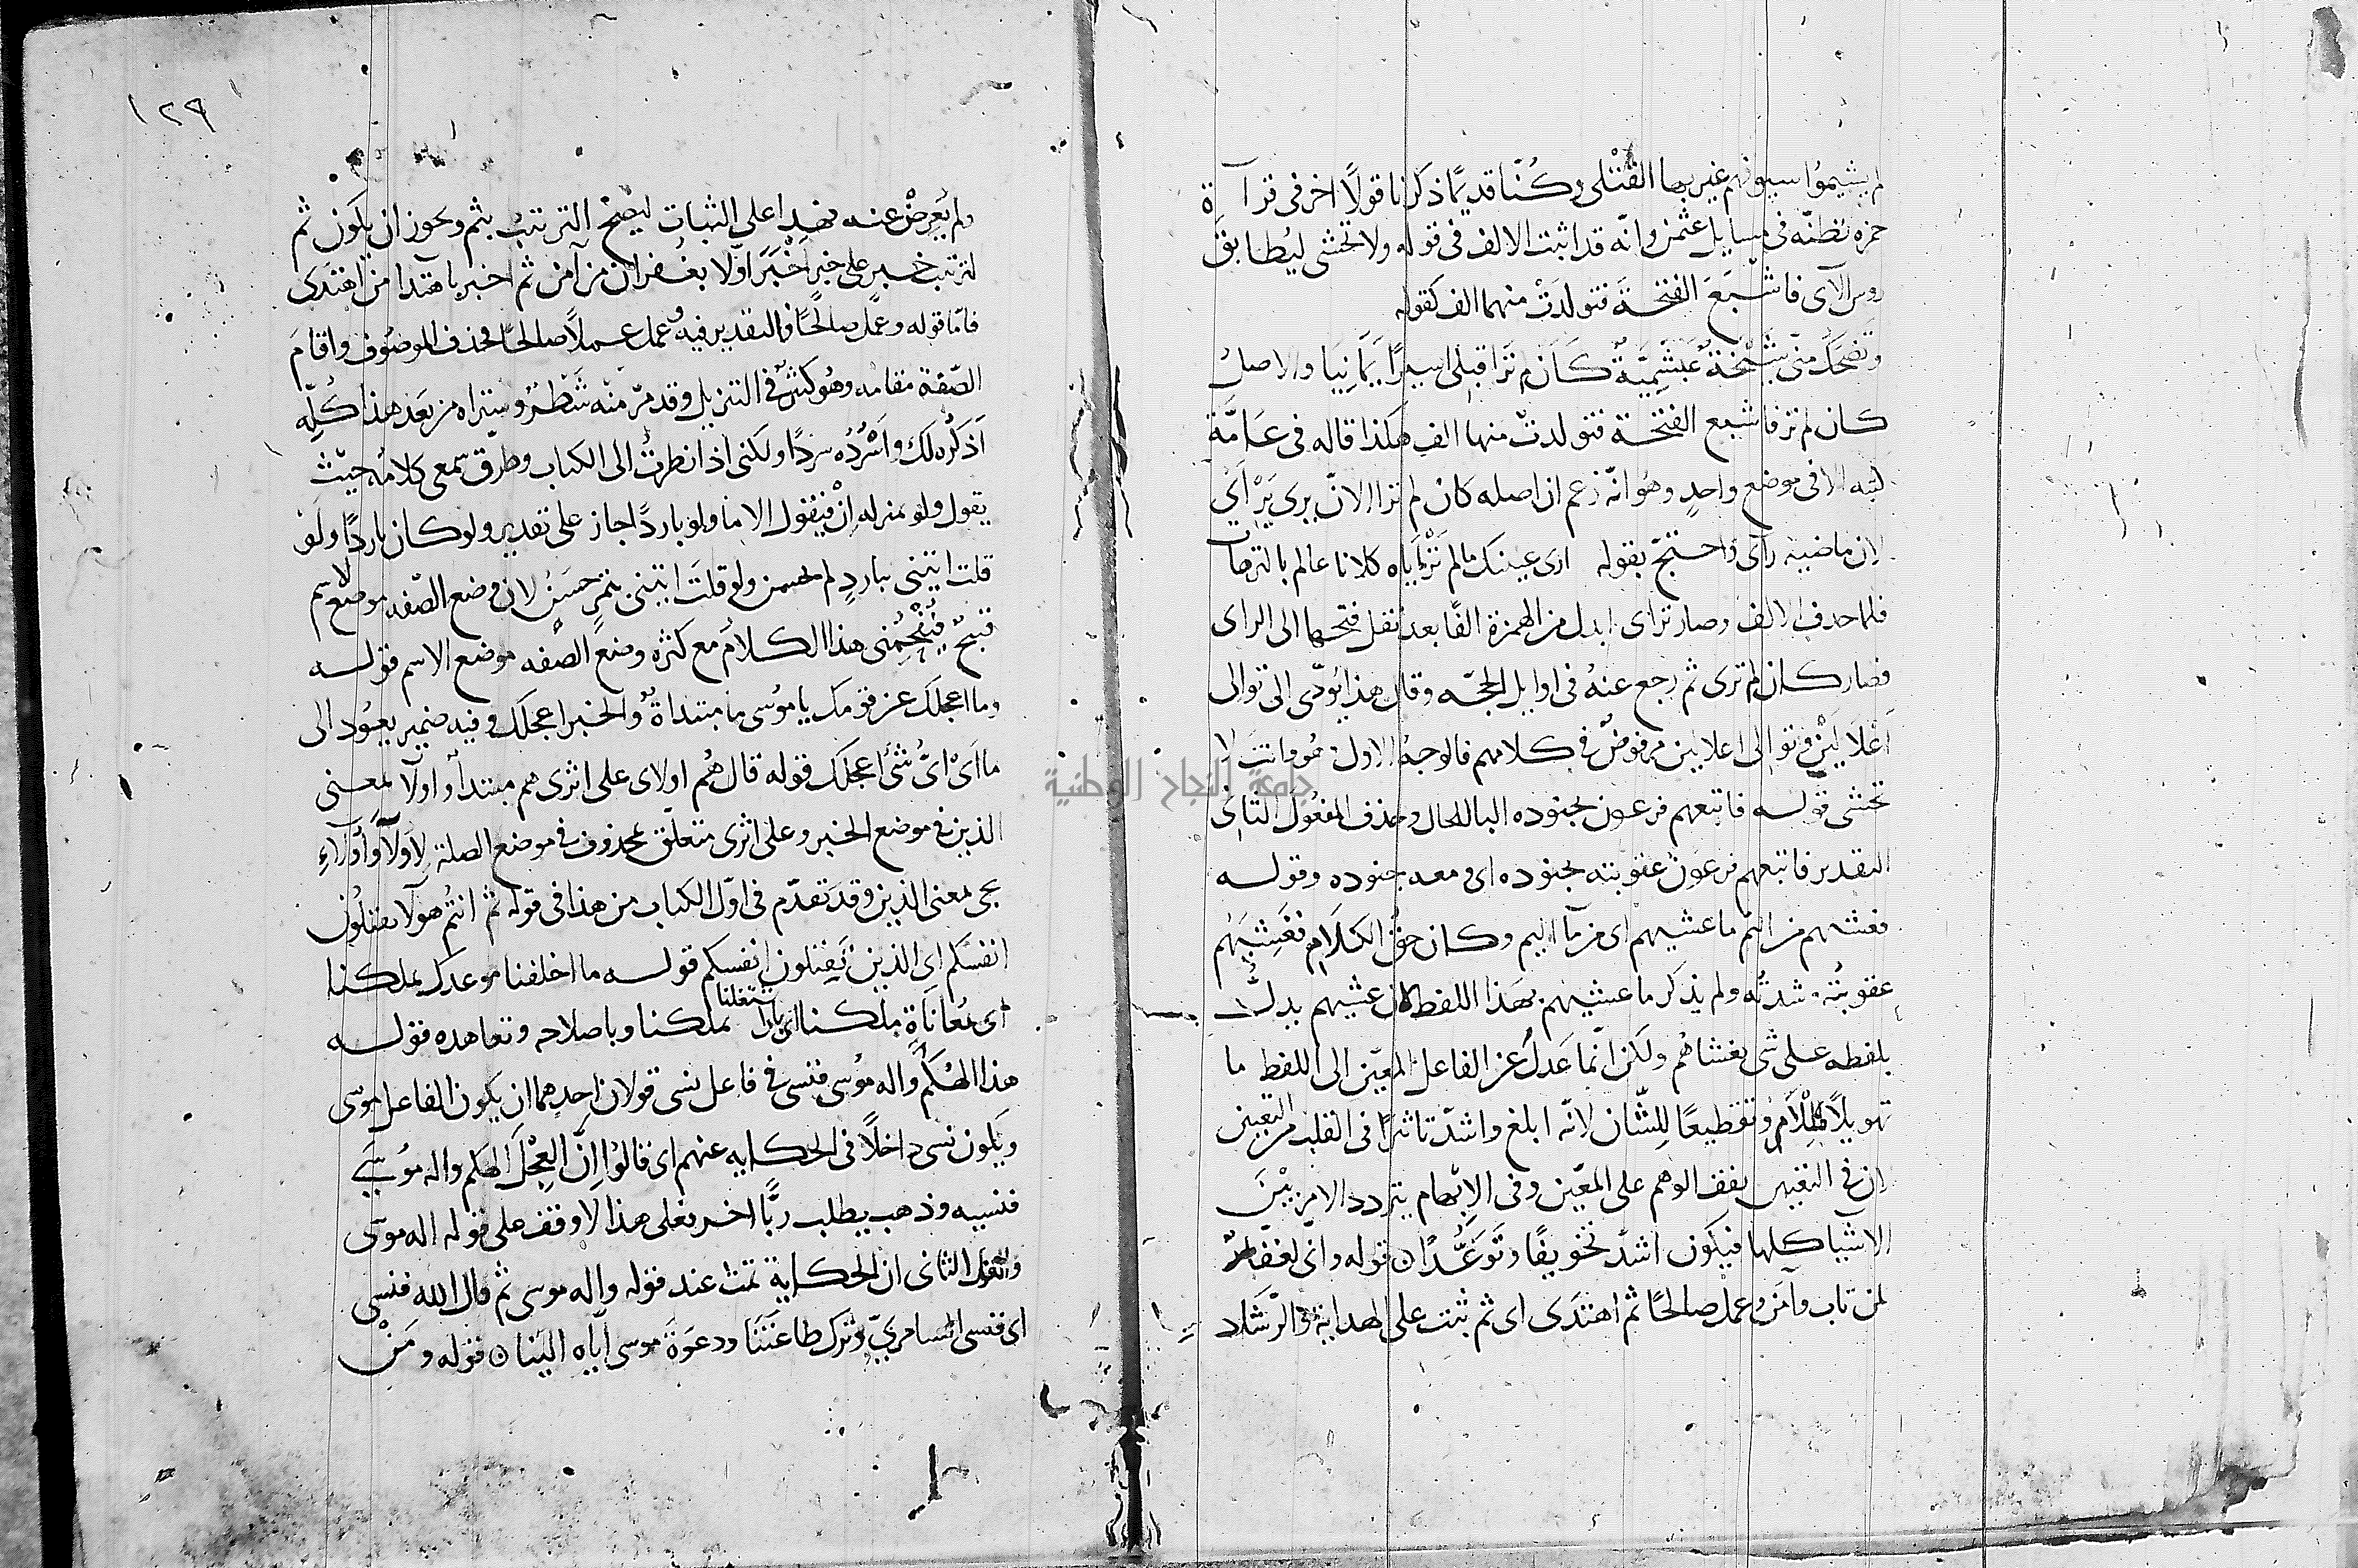 لم يشيموا سيوفهم غير بها القتلى وكنا قديمًا ذكرنا قولًا اخر فى قرآة
حمزه نظنّه فى مسايل عثمن وانّه قد اثبت الالف فى قوله ولا تخشى ليُطابقَ
روس الآى فاشبَعَ الفتحةَ فتولدَتْ منهما الف كقوله
وتضحكُ منّى شَيْخةٌ عَبْشَمِيّةٌ كَاَن لم تَرَا قبلى اسيرًا يَمَانِيَا والاصلُ
كان لم تر فاشبع الفتحة فتولدتْ منها الف هكذا قاله فى عامّة
كتبه الا فى موضع واحدٍ وهُو انّه زعم ان اصله كان لم ترا الانّ يرى يَرْأَىُ
لان ماضيه رآى واحتجّ بقوله ارى عينىك مالم تَرْأَياه كلانا عالم بالترهات
فلما حذف الالف وصار تراى ابدل من الهمزة الفًا بعد نقل فتحها الى الراى
فصار كان لم ترى ثم رجع عنهُ فى اوايل الحجّه وقال هذا يُودّى الى توالى
اَعْلالَيْن وتوالى اعلالين مرفوضٌ فى كلامهم فالوجهُ الاول وهُو وانتَ لا
تخشى قوله فاتبعهم فرعون بجنوده البا للحال وحذف المفعُول الثانى
التقدير فاتبعهم فرعون عقوبته بجنوده اى ومعه جنوده وقوله
فغشيهم من اليم ما غشيهم اى من مآ اليم وكان حقّ الكلام فغَشِيَهُم
عقوبتُه وشدتُه ولم يذكر ما غشيهم بهَذا اللفظ لان غشيهم يدلُّ
بلفظه على شى يغشاهُم ولكن انّما عَدلَ عن الفاعل المعيّن الى اللفظ ما
تهويلًا للأمر وتفظيعًا للِشّان لانّه ابلغ واشدّ تاثيرًا فى القلب من التعيين
لان فى التعيين يقف الوهم على المعيّن وفى الابهام يتردد الامر بيْنَ
الاشيا كلها فيكون اشدّ تخويفًا وتوعُّدًا ن قوله وانى لغفّارٌ
لمن تاب وآمَن وعمل صالحًا ثم اهتدَى اى ثم ثبت على الهداية والرّشاد
١٢٩
ولم يُعرِضْ عنه فهذا على الثبات ليصِحَّ الترتيبُ بثم ويجوز ان يكون ثم
لترتيب خبر على خبر اَخْبَرَ اوّلا بغُفران من آمن ثم اخبر باهتدا من اهتدَى
فامّا قوله وعمل صالحًا فالتقدير فيه وعمل عملًا صالحًا فحذف الموصُوف واقامَ
الصّفة مقامه وهُو كثيرٌ فى التنزيل وقد مرّ منْه شَطْرٌ وستراه من بَعد هذا كُلّه
اَذكُره لك واَسْرُدُه سردًا ولكنى اذا نظرتُ الى الكتاب وطرّق سمعى كلامُه حيْث
يقول ولو بمنزله اِنْ فيَقول الا ما ولو باردًا جاز على تقدير ولو كان باردًا ولو
قلت ايتنى بباردٍ لم يحسن ولو قلتَ ايتنى بتمرٍ حَسَنٌ لان وضع الصّفه موضع الاسم
قبيحٌ فيُفحِمُنى هذا الكلام مع كثره وضع الصفه موضع الاسم قوله
وما اعجلك عن قومك يا مُوسى ما مبتداةٌ والخبر اعجلك وفيه ضمير يعوُد الى
ما اَىْ اىُّ شئ اعجلك قوله قال هُم اولاى على اثرى هم مبتدأ واولا بمعنى
الذين فى موضع الخبر وعلى اثرى متعلّق بمحذوف فى موضع الصلة لِاوُلَآ واُولآءِ
يجى بمعنى الذين وقد تقدّم فى اوّل الكتاب من هذا فى قوله ثم انتُم هولآ تقتلُون
انفسَكم اى الذين تقتلون انفسكم قوله ما اخلفنا موعدك بملكنا
اى بمُعاناةِ ملكنا اى بان اشتغلنا بملكنا وباصلاحه وتعاهده قوله
هذا الهُكم واله مُوسى فنسى فى فاعل نسى قولان احدهما ان يكون الفاعل موسى
ويكون نسى داخلًا فى الحكايه عنهم اى قالوُا اِنّ العِجْل الهكم واله مُوسى
فنسيه وذهب يطلب ربًّا اخر فعلى هذا لا وقف على قوله اله موسى
والقول الثانى ان الحكاية تمت عند قوله واله موسى ثم قال الله فنسى
اى فنسى السامرىّ وترك طاعتَنا ودعوَةَ موسى ايّاه الينا ن قوله ومَنْ
جامعة النجاح الوطنية